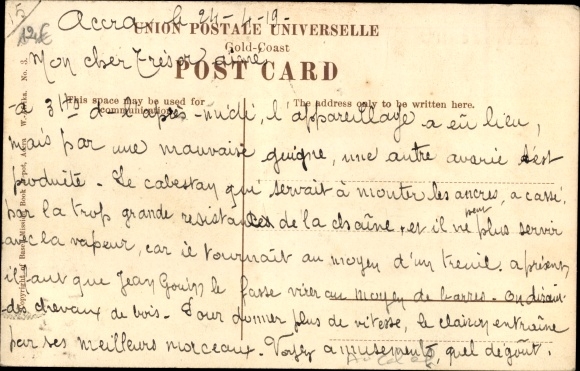 15
12€
Accra le 24-4-19-
UNION POSTALE UNIVERSELLE
Gold-Coast
Mon cher trésor aimé,
POST CARD
This space may be used for communication.
The address only to be written here.
a 3h de l'après-midi, l'appareillage a eu lieu,
mais par une mauvaise guigne, une autre avarie s'est
produite. Le cabestan qui servait à monter les ancres, a cassé
par la trop grande resistance de la chaîne, et il ne peut plus servir
avec la vapeur, car il tournait au moyen d'un treuil. a présent,
il faut que Jean Gouin le fasse virer au moyen de barres. On dirait
des chevaux de bois. Pour donner plus de vitesse, le clairon entraîne
par ses meilleurs morceaux. Voyez amusements, quel dégoût.
Copyright of Basel Mission Book Depot, Accra W.-Afrika. No. 3.